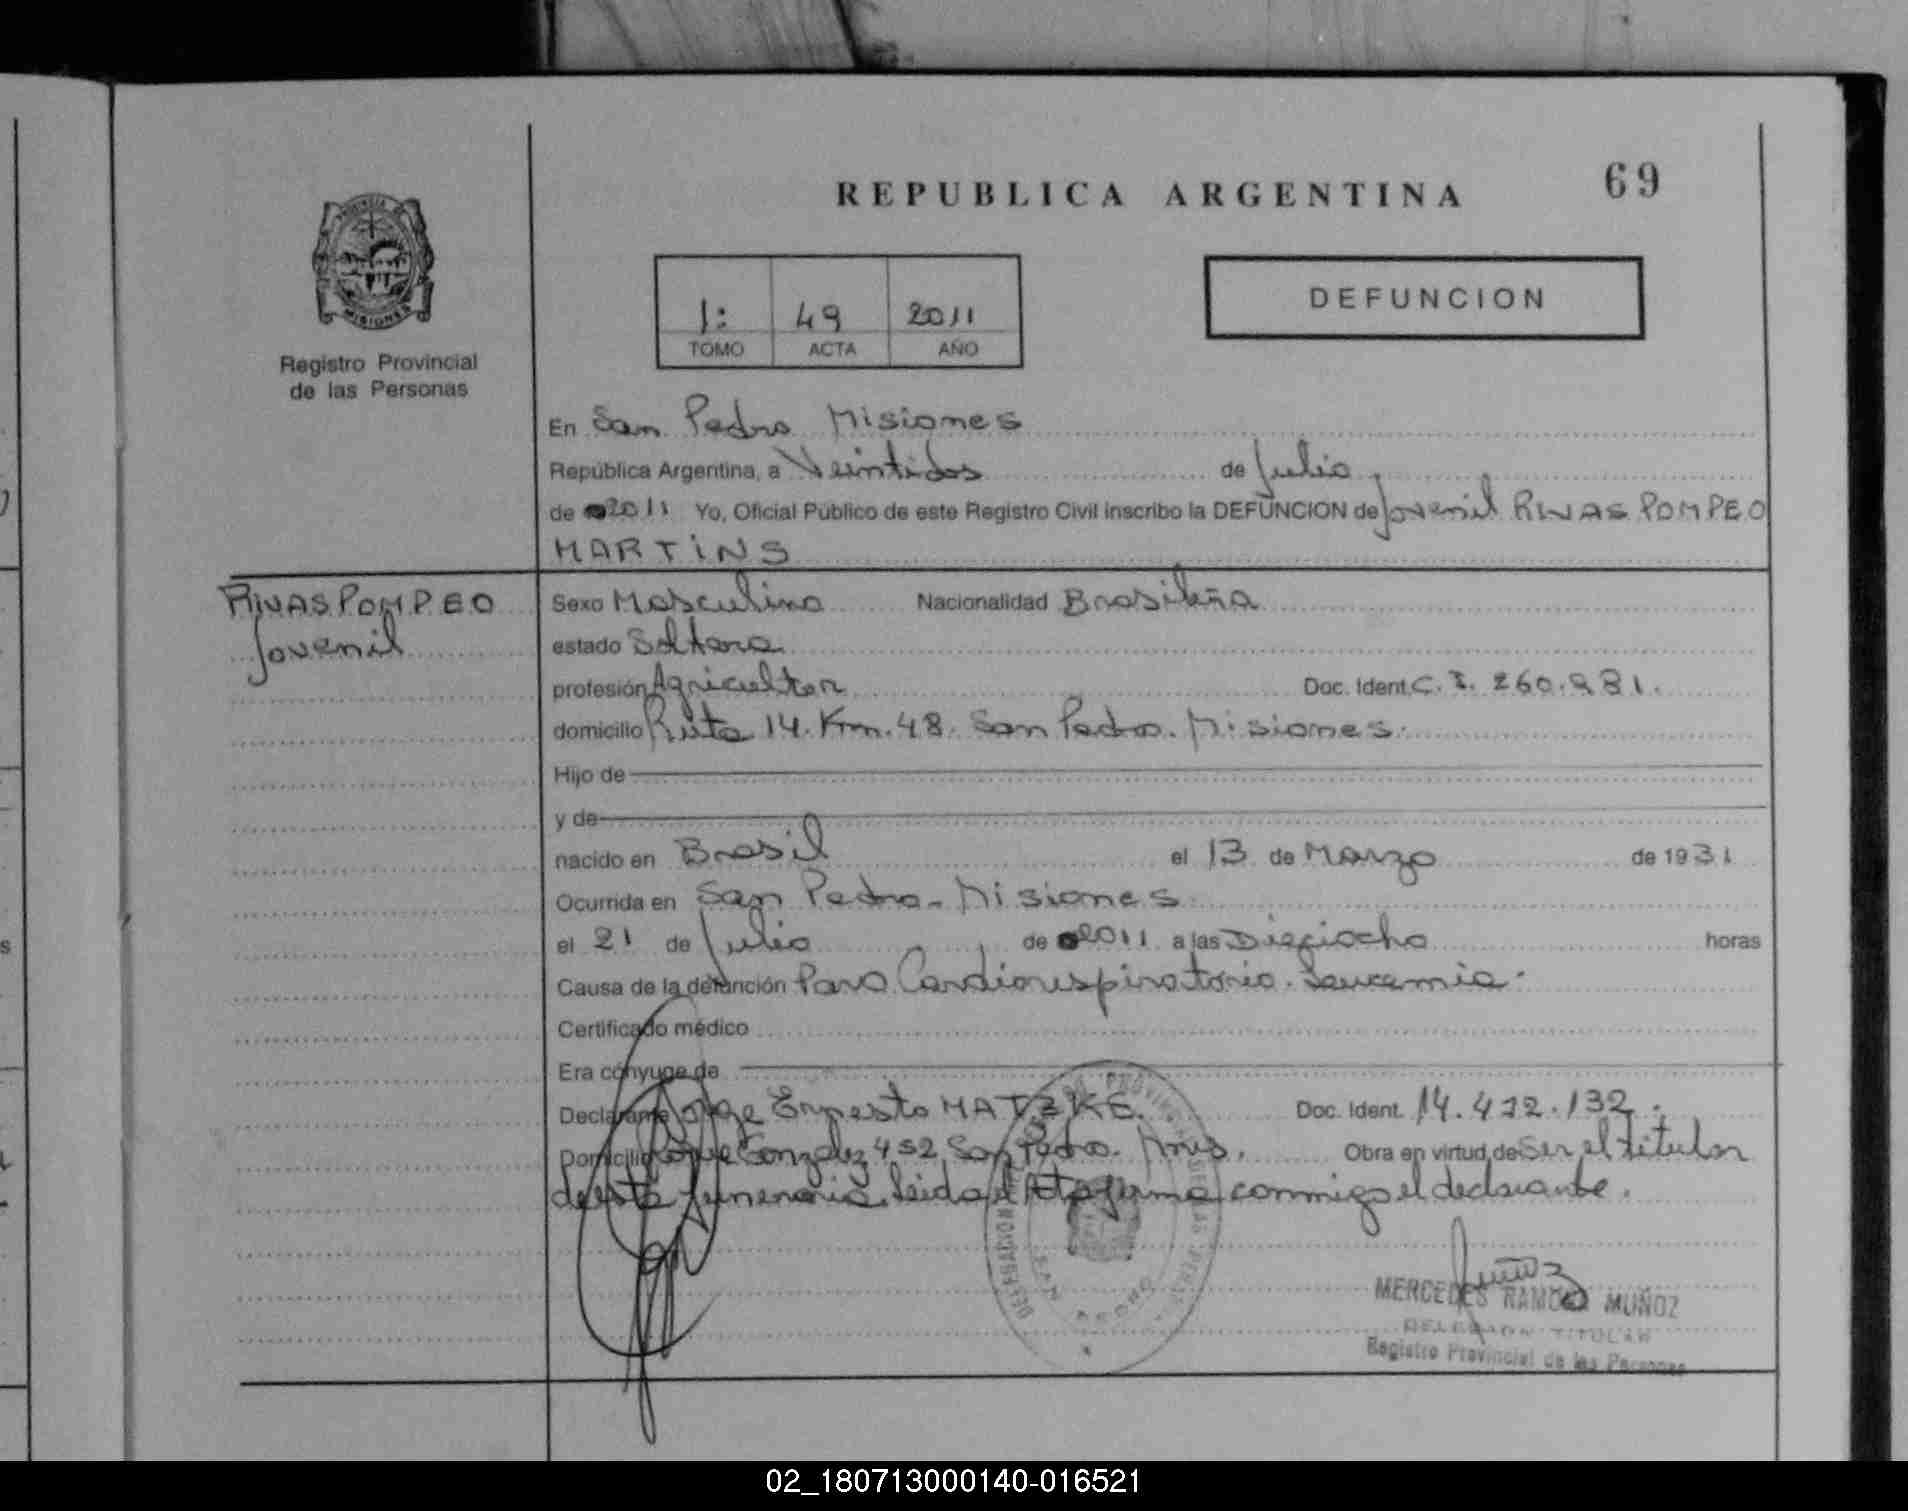 69
REPUBLICA ARGENTINA
PROVINCIA DE
MISIONES
Registro Provincial
de las Personas
1: 49 2011
TOMO ACTA AÑO
DEFUNCION
En San Pedro Misiones
República Argentina, a Veintidos de Julio
de 2011 Yo, Oficial Público de este Registro Civil inscribo la DEFUNCION de Jovenil RIVAS POMPEO
MARTINS
RIVAS POMPEO
Jovenil
Sexo Masculino Nacionalidad Brasileña
estado Soltero
profesión Agricultor Doc. Ident. C. I. 260.981.
domicilio Ruta 14. Km. 48. San Pedro. Misiones.
Hijo de
y de
nacido en Brasil el 13 de Marzo de 1931
Ocurrida en San Pedro - Misiones
el 21 de Julio de 2011 a las Dieciocho horas
Causa de la defunción Paro Cardiorespiratorio. Leucemia.
Certificado médico
Era cónyuge de
Declarante Jorge Ernesto MATZKE. Doc. Ident. 14.432.132.
Domicilio Roque Gonzalez 452 San Pedro. Mnes. Obra en virtud de Ser el titular
de esta funeraria. Leida el Acta firma conmigo el declarante.
MERCEDES RAMONA MUÑOZ
TITULAR
Registro Provincial de las Personas
02_180713000140-016521